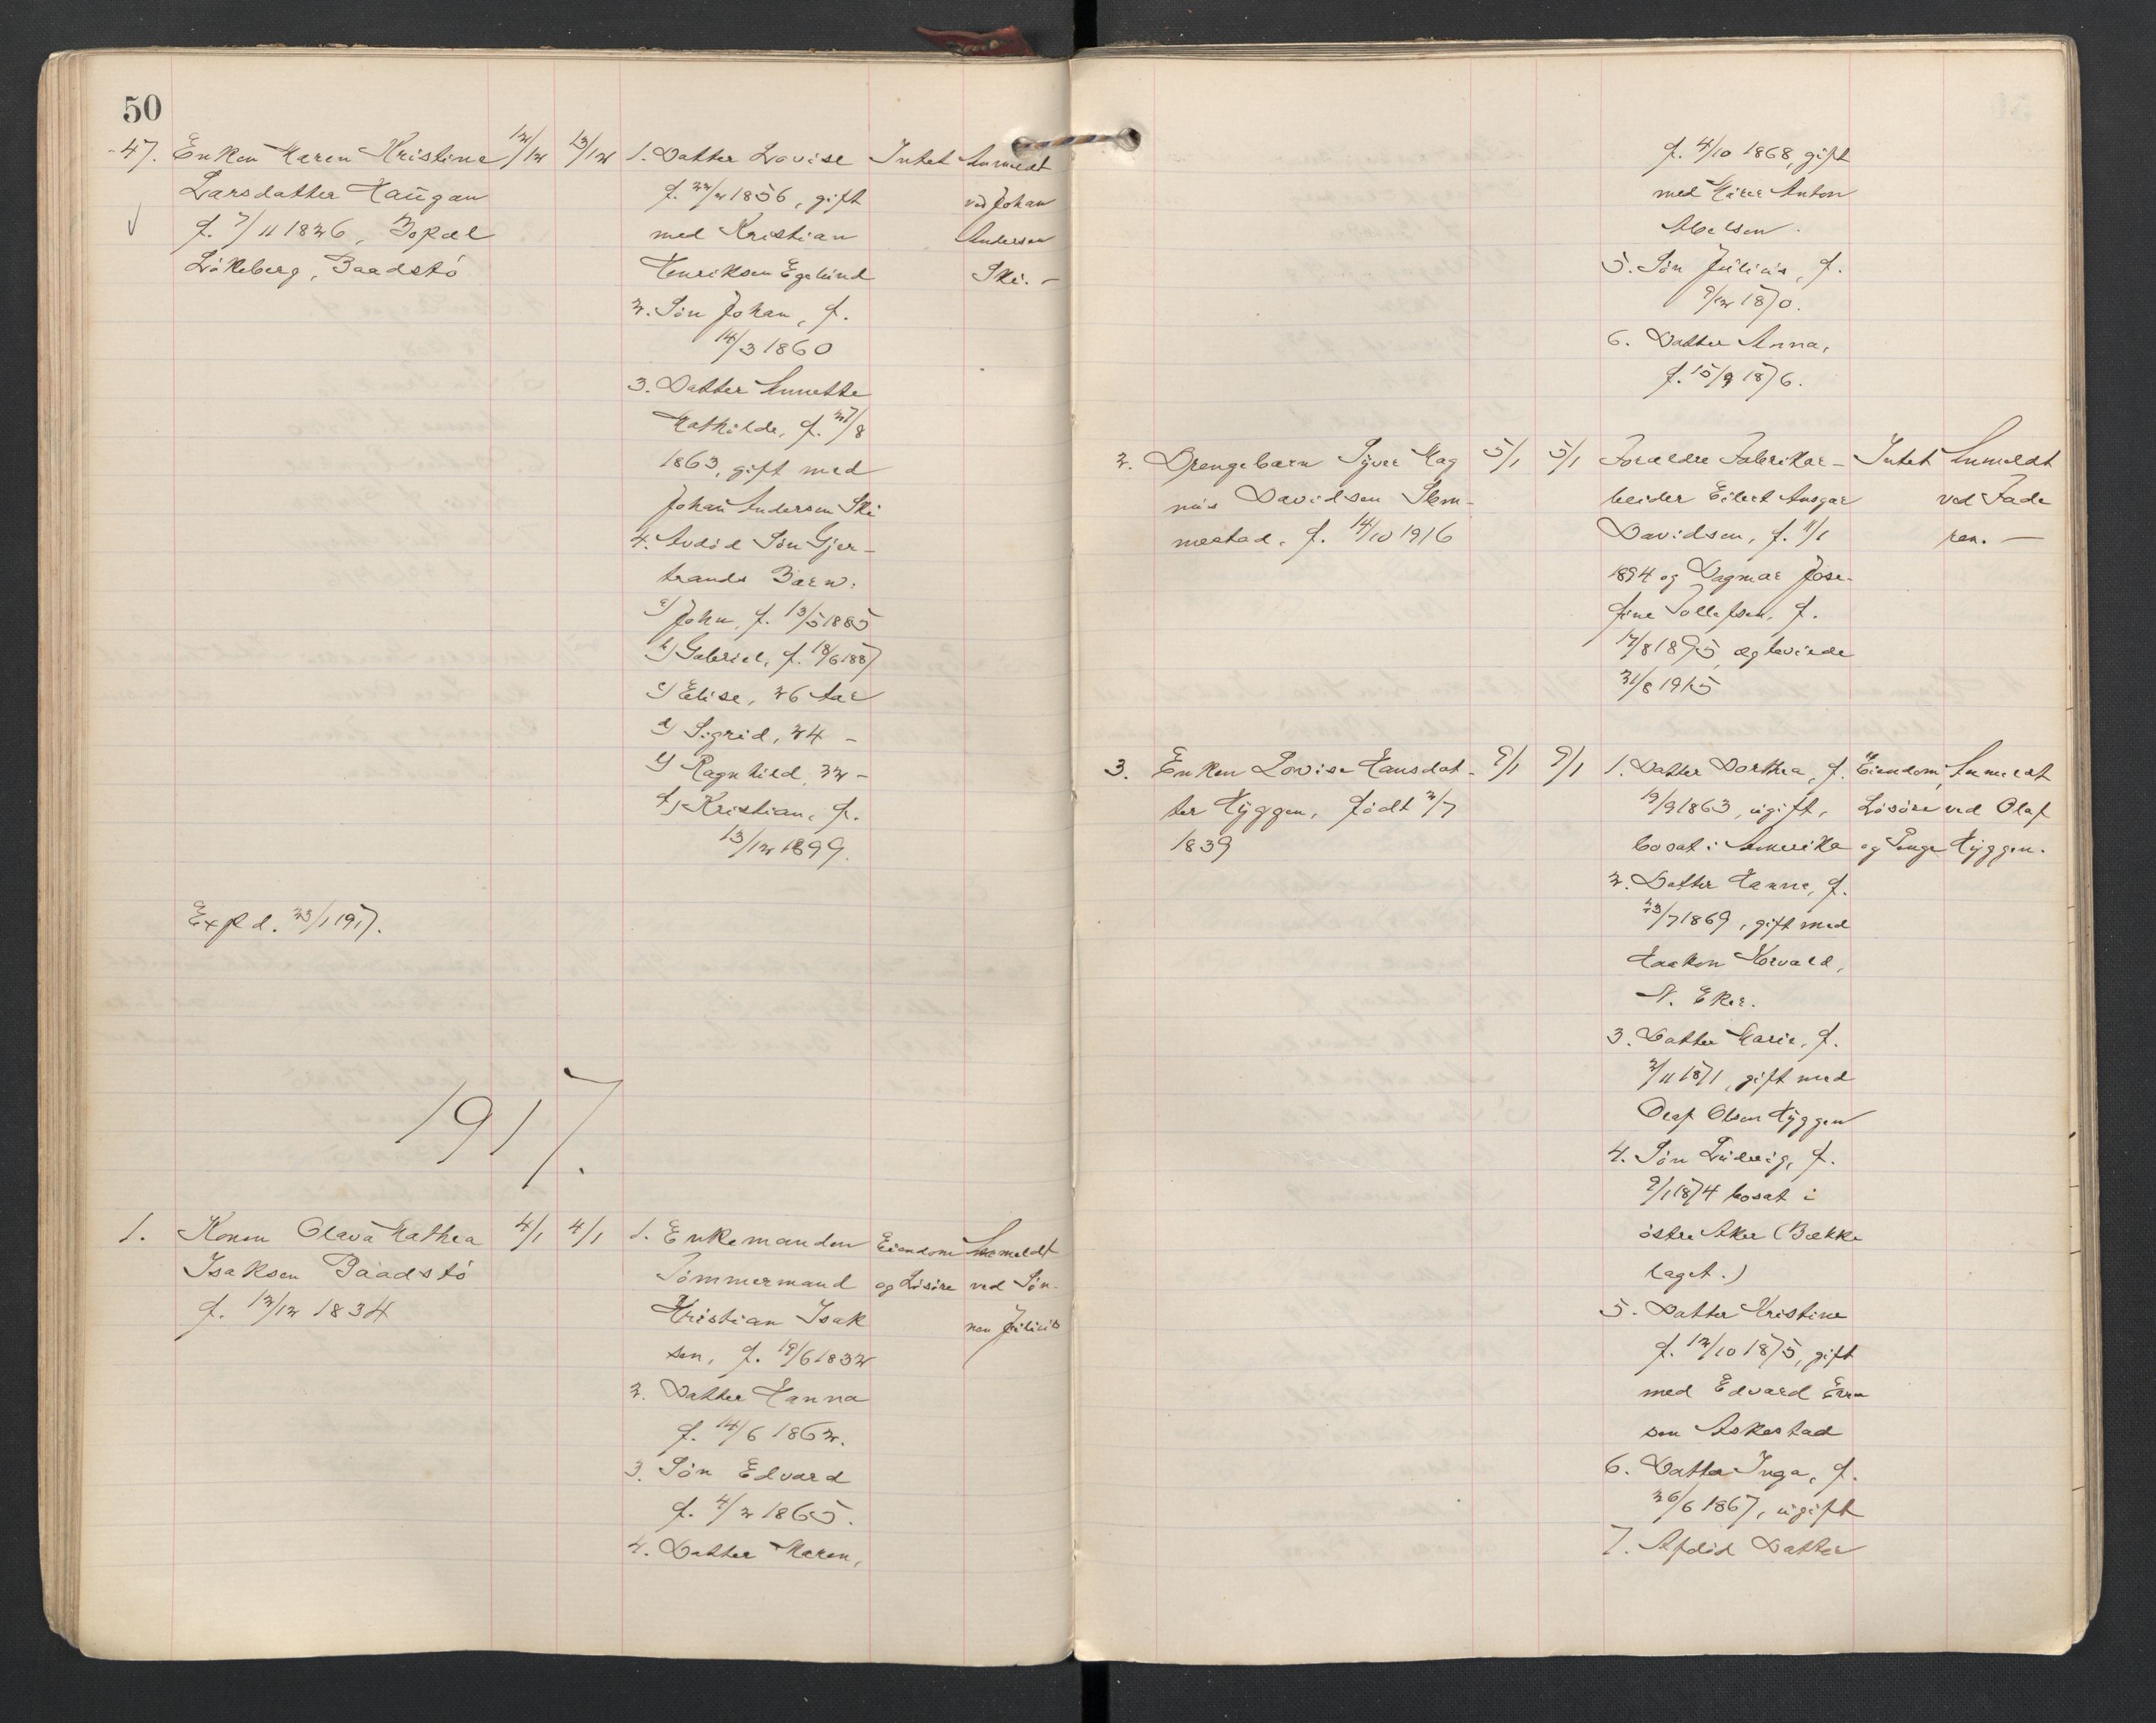 50
47. Enken Maren Kristine 12/12 13/12 1. Datter Lovise Intet Anmeldt
Larsdatter Haugan f. 22/2 1856, gift ved Johan
f. 7/11 1826, Bopæl med Kristian Andersen
Løkeberg, Baadstø Henriksen Egelund Ski. –
2. Søn Johan, f.
14/3 1860
3. Datter Annette
Mathilde, f. 27/8
1863, gift med
Johan Andersen Ski
4. Avdød Søn Gjer-
trands Barn:
a) John, f. 13/5 1885
b) Gabriel, f. 18/6 1887
c) Elise, 26 Aar
d) Sigrid, 24 –
e) Ragnhild, 22 –
f) Kristian, f.
13/12 1899.
Expd. 23/1 1917.
1917.
1. Konen Olava Mathea 4/1 4/1 1. Enkemanden Eiendom Anmeldt
Isaksen Baadstø Tømmermand og Løsøre ved Søn-
f. 12/12 1834 Kristian Isak nen Julius
sen, f. 19/6 1832
2. Datter Hanna
f. 14/6 1862.
3. Søn Edvard
f. 4/2 1865.
4. Datter Maren,
f. 4/10 1868, gift
med Murer Anton
Abelsen.
5. Søn Julius, f.
9/12 1870.
6. Datter Anna,
f. 15/9 1876.
2. Drengebarn Syver Mag 5/1 5/1 Forældre Fabrikar- Intet Anmeldt
nus Davidsen Slem- beider Eilert Ansgar ved Fade
mestad, f. 14/10 1916 Davidsen, f. 11/1 ren. –
1894 og Dagmar Jose-
fine Tollefsen, f.
17/8 1895, ægteviede
21/8 1915
3. Enken Lovise Hansdat- 9/1 9/1 1. Datter Dorthea, f. Eiendom, Anmeldt
ter Hyggen, født 2/7 19/9 1863, ugift, Løsøre ved Olaf
1839 bosat i Amerika og Penge Hyggen.
2. Datter Hanna, f.
23/7 1869, gift med
Haakon Korvald,
N. Eker.
3. Datter Marie, f.
2/11 1871, gift med
Olaf Olsen Hyggen
4. Søn Ludvig, f.
9/1 1874 bosat i
østre Aker (Bække
laget.)
5. Datter Kristine
f. 12/10 1875, gift
med Edvard
sen Askestad
6. Datter Inga, f.
26/6 1867, ugift
7. Afdød Datter